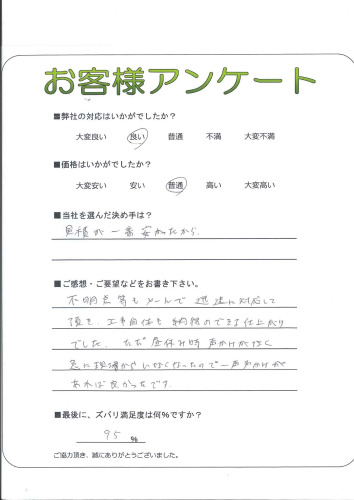 お客様アンケート
■弊社の対応はいかがでしたか？
大変良い 良い 普通 不満 大変不満
■価格はいかがでしたか？
大変安い 安い 普通 高い 大変高い
■当社を選んだ決め手は？
見積が一番安かったから
■ご感想・ご要望などをお書き下さい。
不明点等もメールで迅速に対応して
頂き、工事自体も納得のできる仕上がり
でした。ただ昼休み時声かけが無く
急に現場からいなくなったので一声声かけが
あれば良かったです。
■最後に、ズバリ満足度は何%ですか？
95 %
ご協力頂き、誠にありがとうございました。